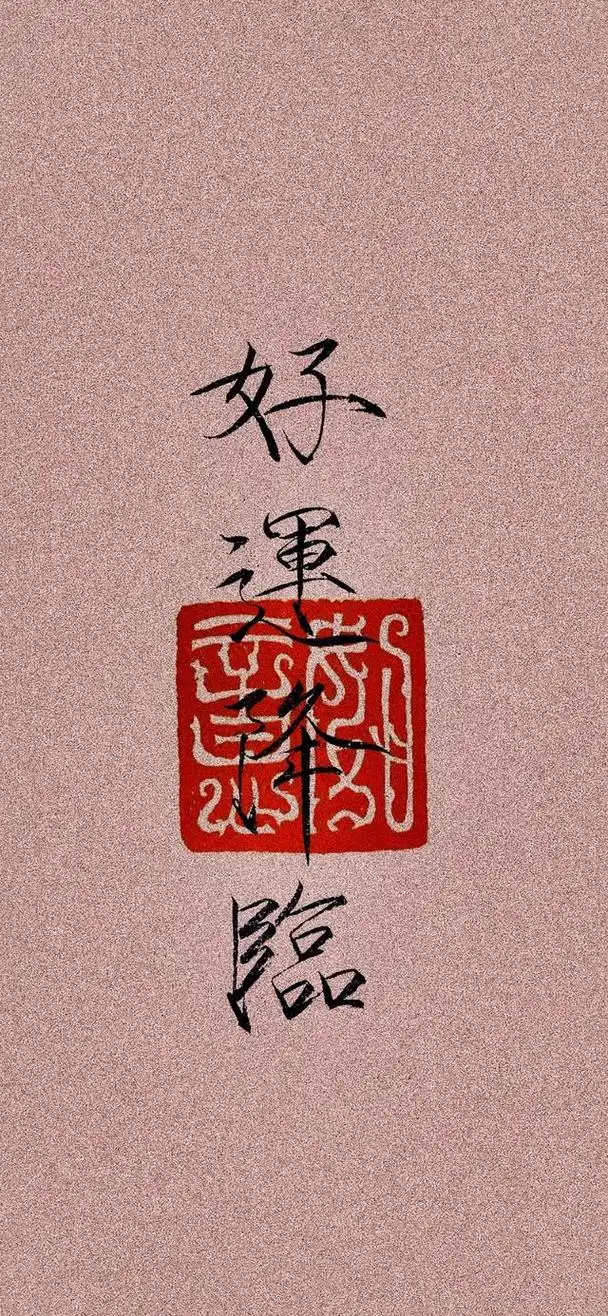 好運降臨